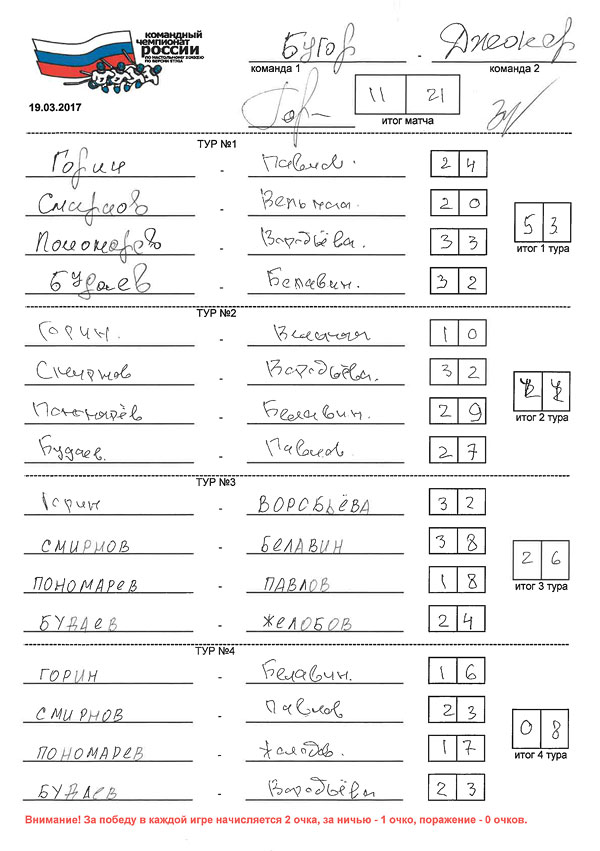 КОМАНДНЫЙ
ЧЕМПИОНАТ
РОССИИ
ПО НАСТОЛЬНОМУ ХОККЕЮ
ПО ВЕРСИИ STIGA
Бугор - Джокер
команда 1 команда 2
11 21
итог матча
19.03.2017
ТУР №1
Горин - Павлов. 2 4
Смирнов - 2 0
Пономарёв - Воробьёва. 3 3
Будаев - Белавин. 3 2
5 3
итог 1 тура
ТУР №2
Горин. - 1 0
Смирнов - Воробьёва. 3 2
Пономарёв - Белавин. 2 9
Будаев. - Павлов. 2 7
итог 2 тура
ТУР №3
Горин - ВОРОБЬЁВА 3 2
СМИРНОВ - БЕЛАВИН 3 8
ПОНОМАРЕВ - ПАВЛОВ 1 8
БУДАЕВ - ЖЕЛОБОВ 2 4
2 6
итог 3 тура
ТУР №4
ГОРИН - Белавин. 1 6
СМИРНОВ - Павлов 2 3
ПОНОМАРЕВ - 1 7
БУДАЕВ - Воробьёва 2 3
0 8
итог 4 тура
Внимание! За победу в каждой игре начисляется 2 очка, за ничью - 1 очко, поражение - 0 очков.